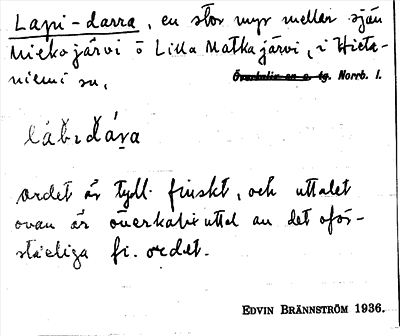 Lapi-darra, en stor myr mellan sjön
Miekojärvi o Lilla Matkajärvi, i Hieta-
niemi sn,
Överkalix sn o. tg. Norrb. l.
Ordet är tydl. finskt, och uttalet
ovan är överkalixuttal av det oför-
ståeliga fi. ordet.
EDVIN BRÄNNSTRÖM 1936.